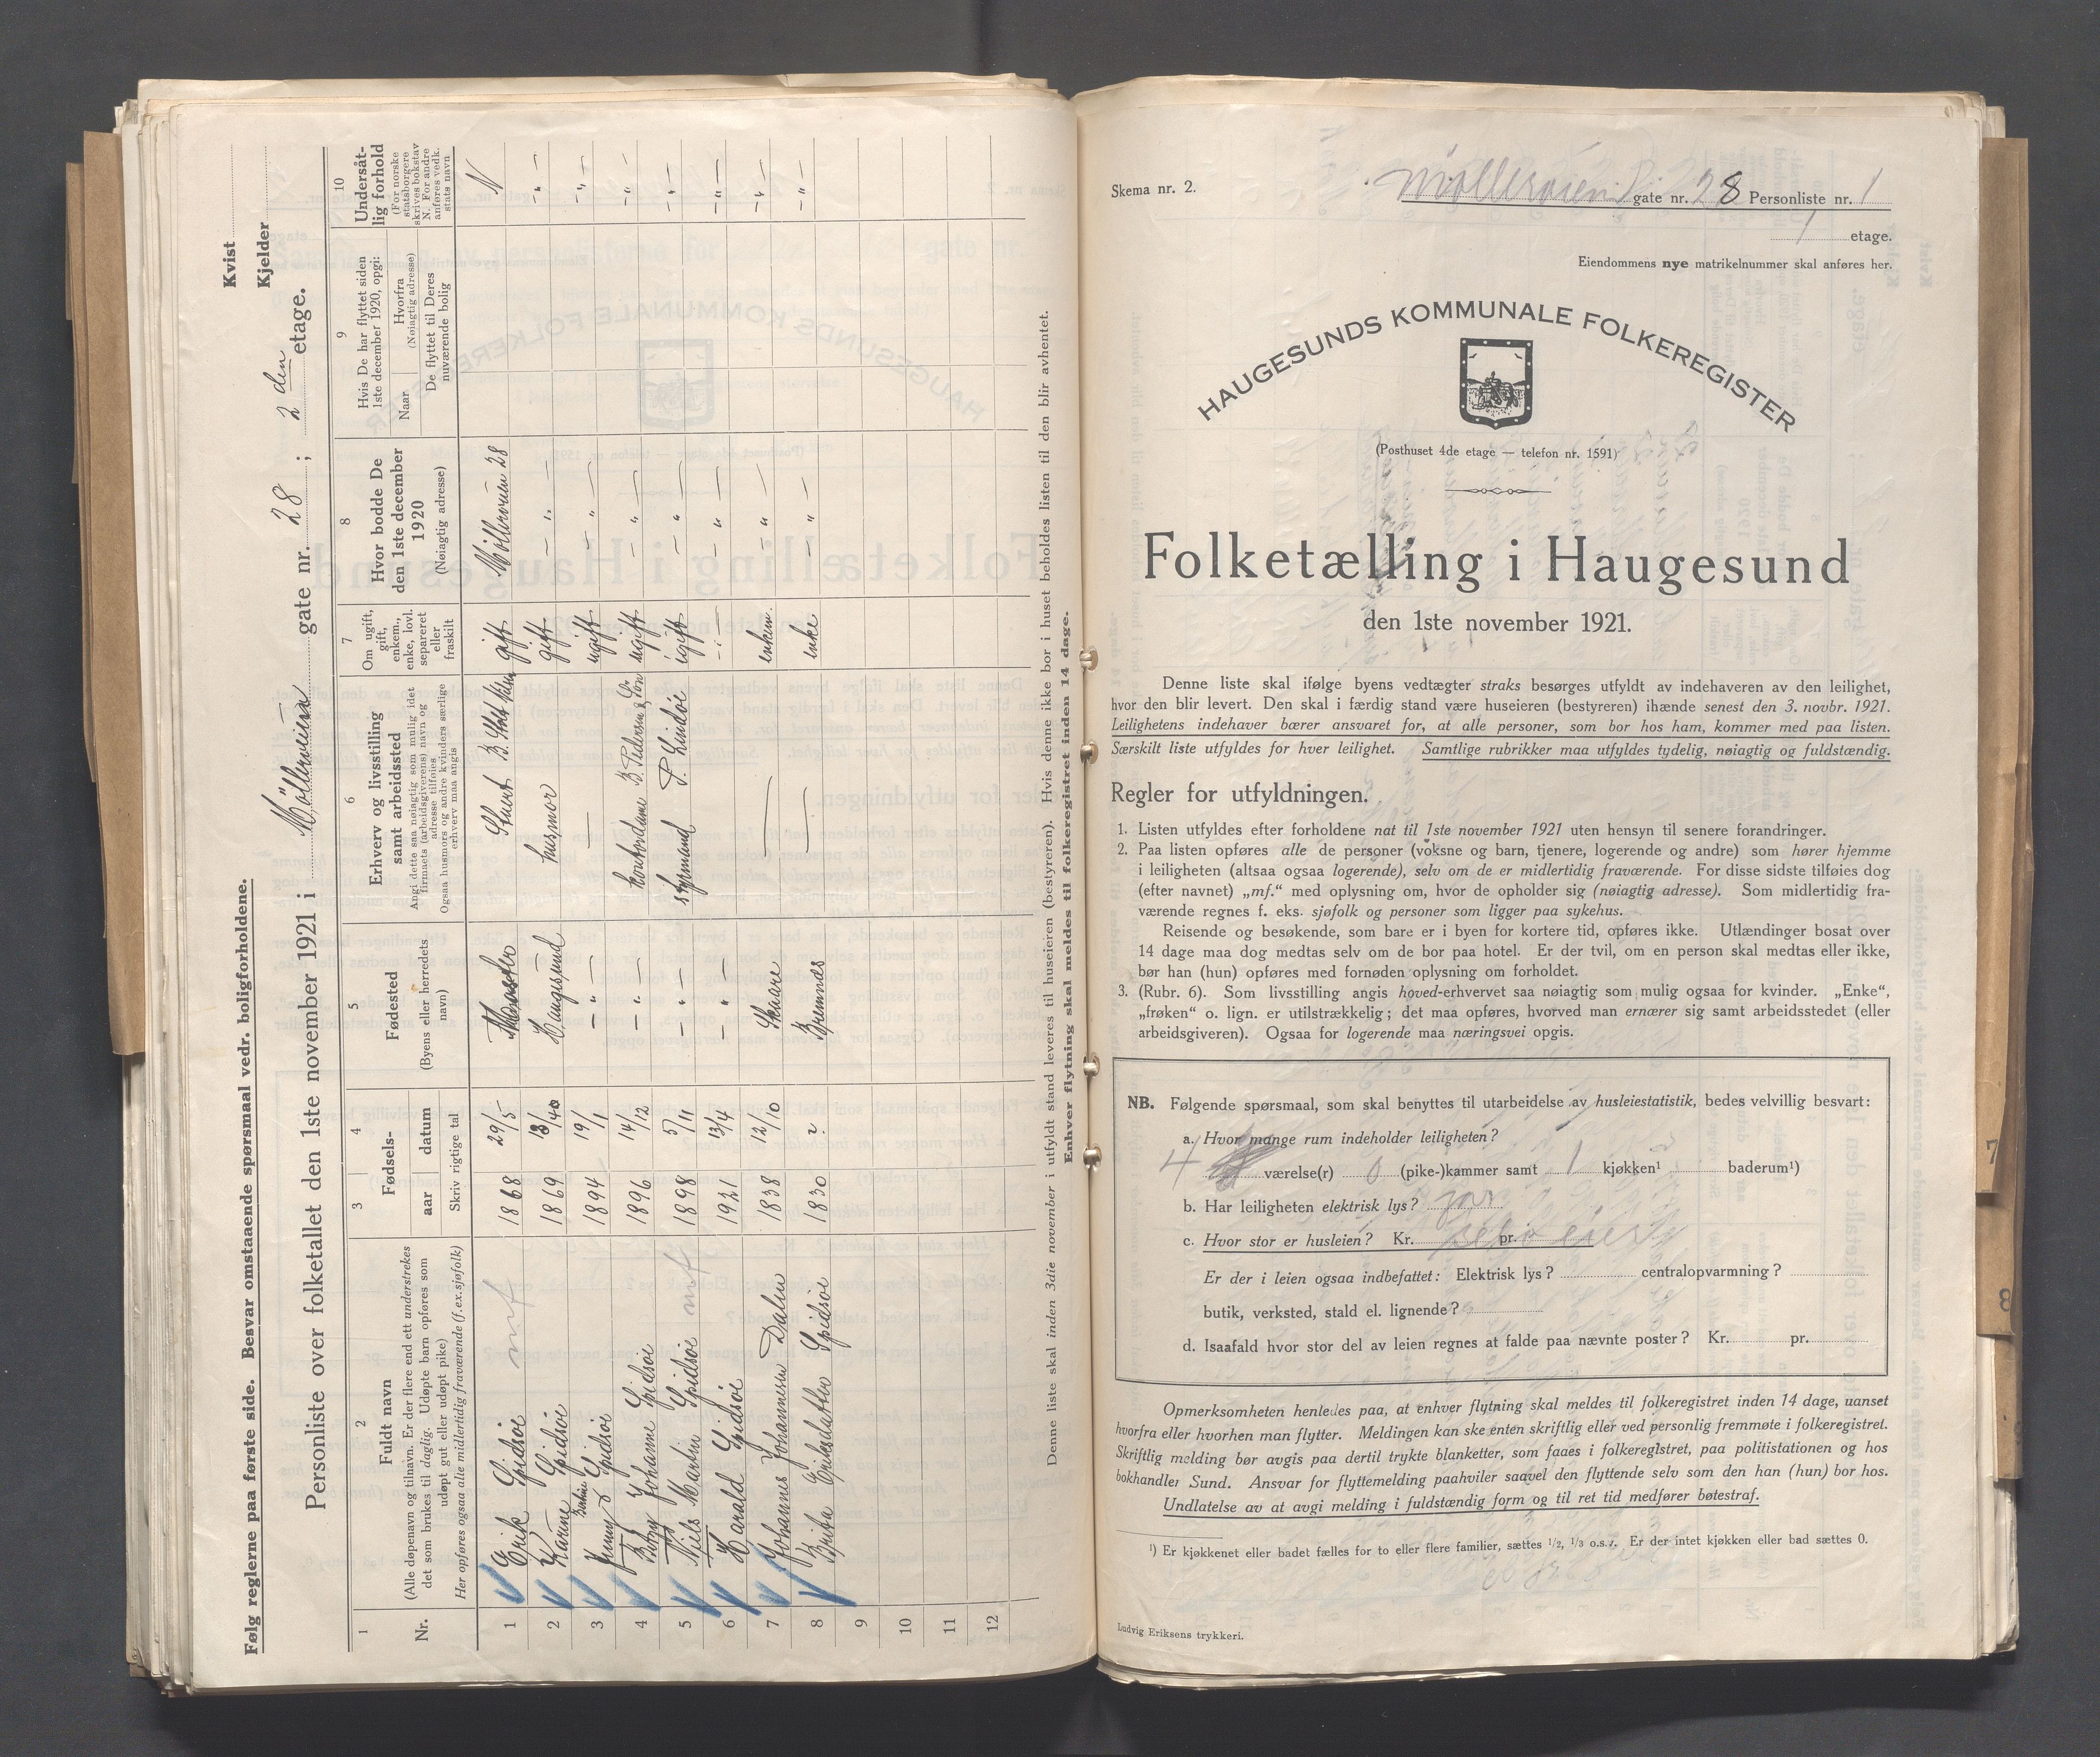 Følg reglerne paa første side. Besvar omstaaende spørsmaal vedr. boligforholdene.
Kvist
Kjelder
Personliste over folketallet den 1ste november 1921 i Møllerveien gate nr. 28 ; 2den etage.
1
Nr.
2
Fuldt navn
(Alle døpenavn og tilnavn. Er der flere end ett understrekes
det som brukes til daglig. Udøpte barn opføres som
udøpt gut eller udøpt pike)
Her opføres ogsaa alle midlertidig fraværende (f.ex.sjøfolk)
3
4
Fødsels-
aar
datum
Skriv rigtige tal
5
Fødested
(Byens eller herredets
navn)
6
Erhverv og livsstilling
samt arbeidssted
Angi dette saa nøiagtig som mulig idet
firmaets (arbeidsgiverens) navn og
adresse tilføies
Ogsaa husmors og andre kvinders særlige
erhverv maa angis
7
Om ugift,
gift,
enkem.,
enke, lovl.
separeret
eller
fraskilt
8
Hvor bodde De
den 1ste december
1920
(Nøiagtig adresse)
9
Hvis De har flyttet siden
1ste december 1920, opgi:
Naar
Hvorfra
(Nøiagtig adresse)
De flyttet til Deres
nuværende bolig
10
Underståt-
lig forhold
(For norske
statsborgere
skrives bokstav
N. For andre
anføres vedk.
stats navn
1 Erik Spidsøi mf 1868 29/5 gift Møllerveien 28 N
2 Karine Spidsøi 1869 Haugesund husmor gift — " — — " —
3 Spidsøi 1894 19/1 — " — — ugift — " — — " —
4 Borg Johanne Spidsøi 1896 14/12 — " — kontordame B. Pedersen & Søn ugift — " — — " —
5 Niels Martin Spidsøi mf 1898 5/11 — " — styrmand P. Lindøe ugift — " — — " —
6 Harald Spidsøi 1921 13/4 — " — — " — — " — — " —
7 Johannes Johannesen Dalen 1838 12/10 Skaare — enkem. — " — — " —
8 Brita Eriksdatter Spidsøi 1830 ? Bremnes — enke — " — — " —
9
10
11
12
Denne liste skal inden 3die november i utfyldt stand leveres til huseieren (bestyreren). Hvis denne ikke bor i huset beholdes listen til den blir avhentet.
Enhver flytning skal meldes til folkeregistret inden 14 dage.
Skema nr. 2.
Møllerveien gate nr. 28 Personliste nr. 1
1 etage.
Eiendommens nye matrikelnummer skal anføres her.
HAUGESUNDS KOMMUNALE FOLKEREGISTER
(Posthuset 4de etage — telefon nr. 1591)
Folketælling i Haugesund
den 1ste november 1921.
Denne liste skal ifølge byens vedtægter straks besørges utfyldt av indehaveren av den leilighet,
hvor den blir levert. Den skal i færdig stand være huseieren (bestyreren) ihænde senest den 3. novbr. 1921.
Leilighetens indehaver bærer ansvaret for, at alle personer, som bor hos ham, kommer med paa listen.
Særskilt liste utfyldes for hver leilighet. Samtlige rubrikker maa utfyldes tydelig, nøiagtig og fuldstændig.
Regler for utfyldningen.
1. Listen utfyldes efter forholdene nat til 1ste november 1921 uten hensyn til senere forandringer.
2. Paa listen opføres alle de personer (voksne og barn, tjenere, logerende og andre) som hører hjemme
i leiligheten (altsaa ogsaa logerende), selv om de er midlertidig fraværende. For disse sidste tilføies dog
(efter navnet) „mf.“ med oplysning om, hvor de opholder sig (nøiagtig adresse). Som midlertidig fra-
værende regnes f. eks. sjøfolk og personer som ligger paa sykehus.
Reisende og besøkende, som bare er i byen for kortere tid, opføres ikke. Utlændinger bosat over
14 dage maa dog medtas selv om de bor paa hotel. Er der tvil, om en person skal medtas eller ikke,
bør han (hun) opføres med fornøden oplysning om forholdet.
3. (Rubr. 6). Som livsstilling angis hoved-erhvervet saa nøiagtig som mulig ogsaa for kvinder. „Enke“,
„frøken“ o. lign. er utilstrækkelig; det maa opføres, hvorved man ernærer sig samt arbeidsstedet (eller
arbeidsgiveren). Ogsaa for logerende maa næringsvei opgis.
NB. Følgende spørsmaal, som skal benyttes til utarbeidelse av husleiestatistik, bedes velvillig besvart:
a. Hvor mange rum indeholder leiligheten?
4 værelse(r) 0 (pike-)kammer samt 1 kjøkken¹ baderum¹)
b. Har leiligheten elektrisk lys? ja
c. Hvor stor er husleien? Kr. pr. selv eier
Er der i leien ogsaa indbefattet: Elektrisk lys? centralopvarmning?
butik, verksted, stald el. lignende?
d. Isaafald hvor stor del av leien regnes at falde paa nævnte poster? Kr. pr.
Opmerksomheten henledes paa, at enhver flytning skal meldes til folkeregistret inden 14 dage, uanset
hvorfra eller hvorhen man flytter. Meldingen kan ske enten skriftlig eller ved personlig fremmøte i folkeregistret.
Skriftlig melding bør avgis paa dertil trykte blanketter, som faaes i folkeregistret, paa politistationen og hos
bokhandler Sund. Ansvar for flyttemelding paahviler saavel den flyttende selv som den han (hun) bor hos.
Undlatelse av at avgi melding i fuldstændig form og til ret tid medfører bøtestraf.
¹) Er kjøkkenet eller badet fælles for to eller flere familier, sættes 1/2, 1/3 o.s.v. Er der intet kjøkken eller bad sættes 0.
Ludvig Eriksens trykkeri.
7
8